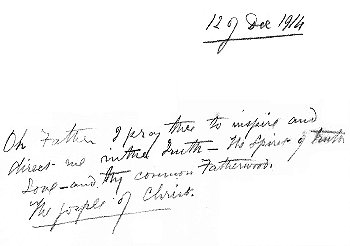 12 of Dec 1914
Oh Father I pray thee to inspire and
direct me in the Truth – The Spirit of truth
Love – and thy common Fatherwood.
The gospel of Christ.